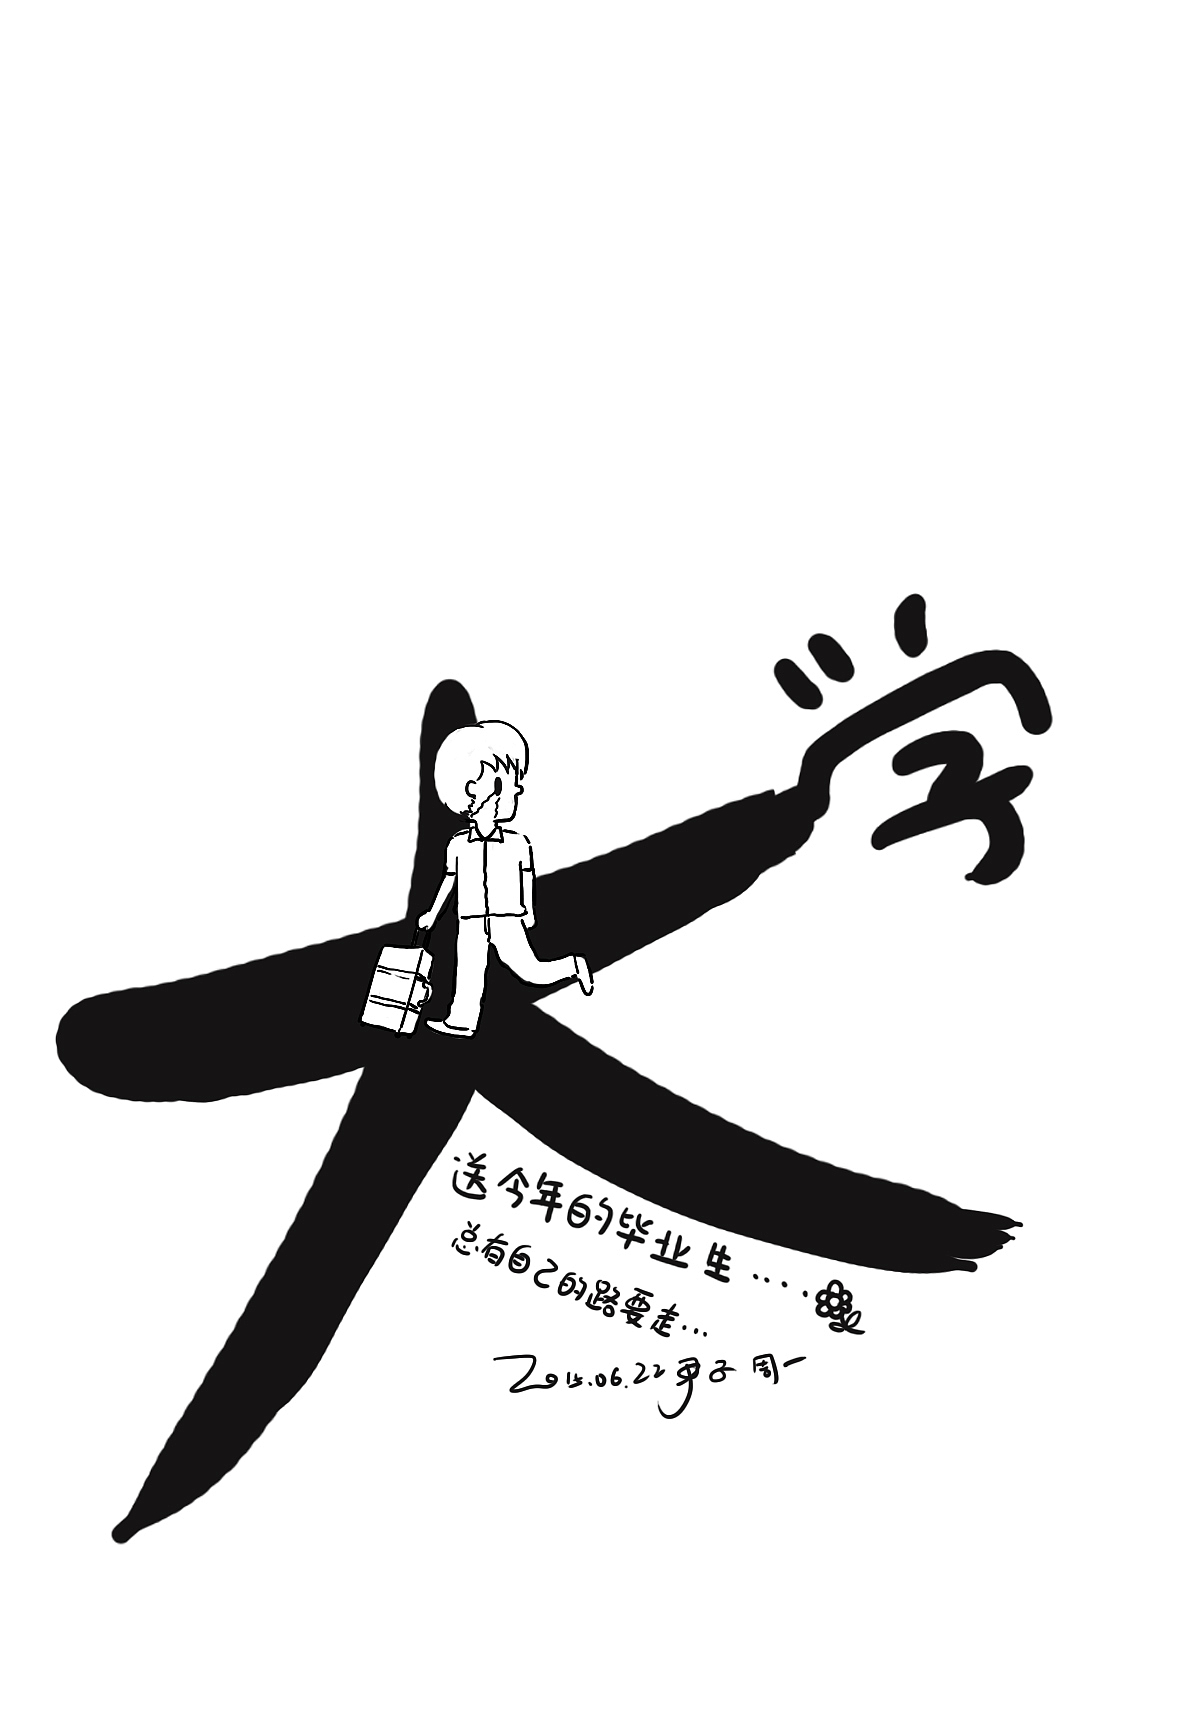 大学
送今年的毕业生....
总有自己的路要走...
2015.06.22 周一